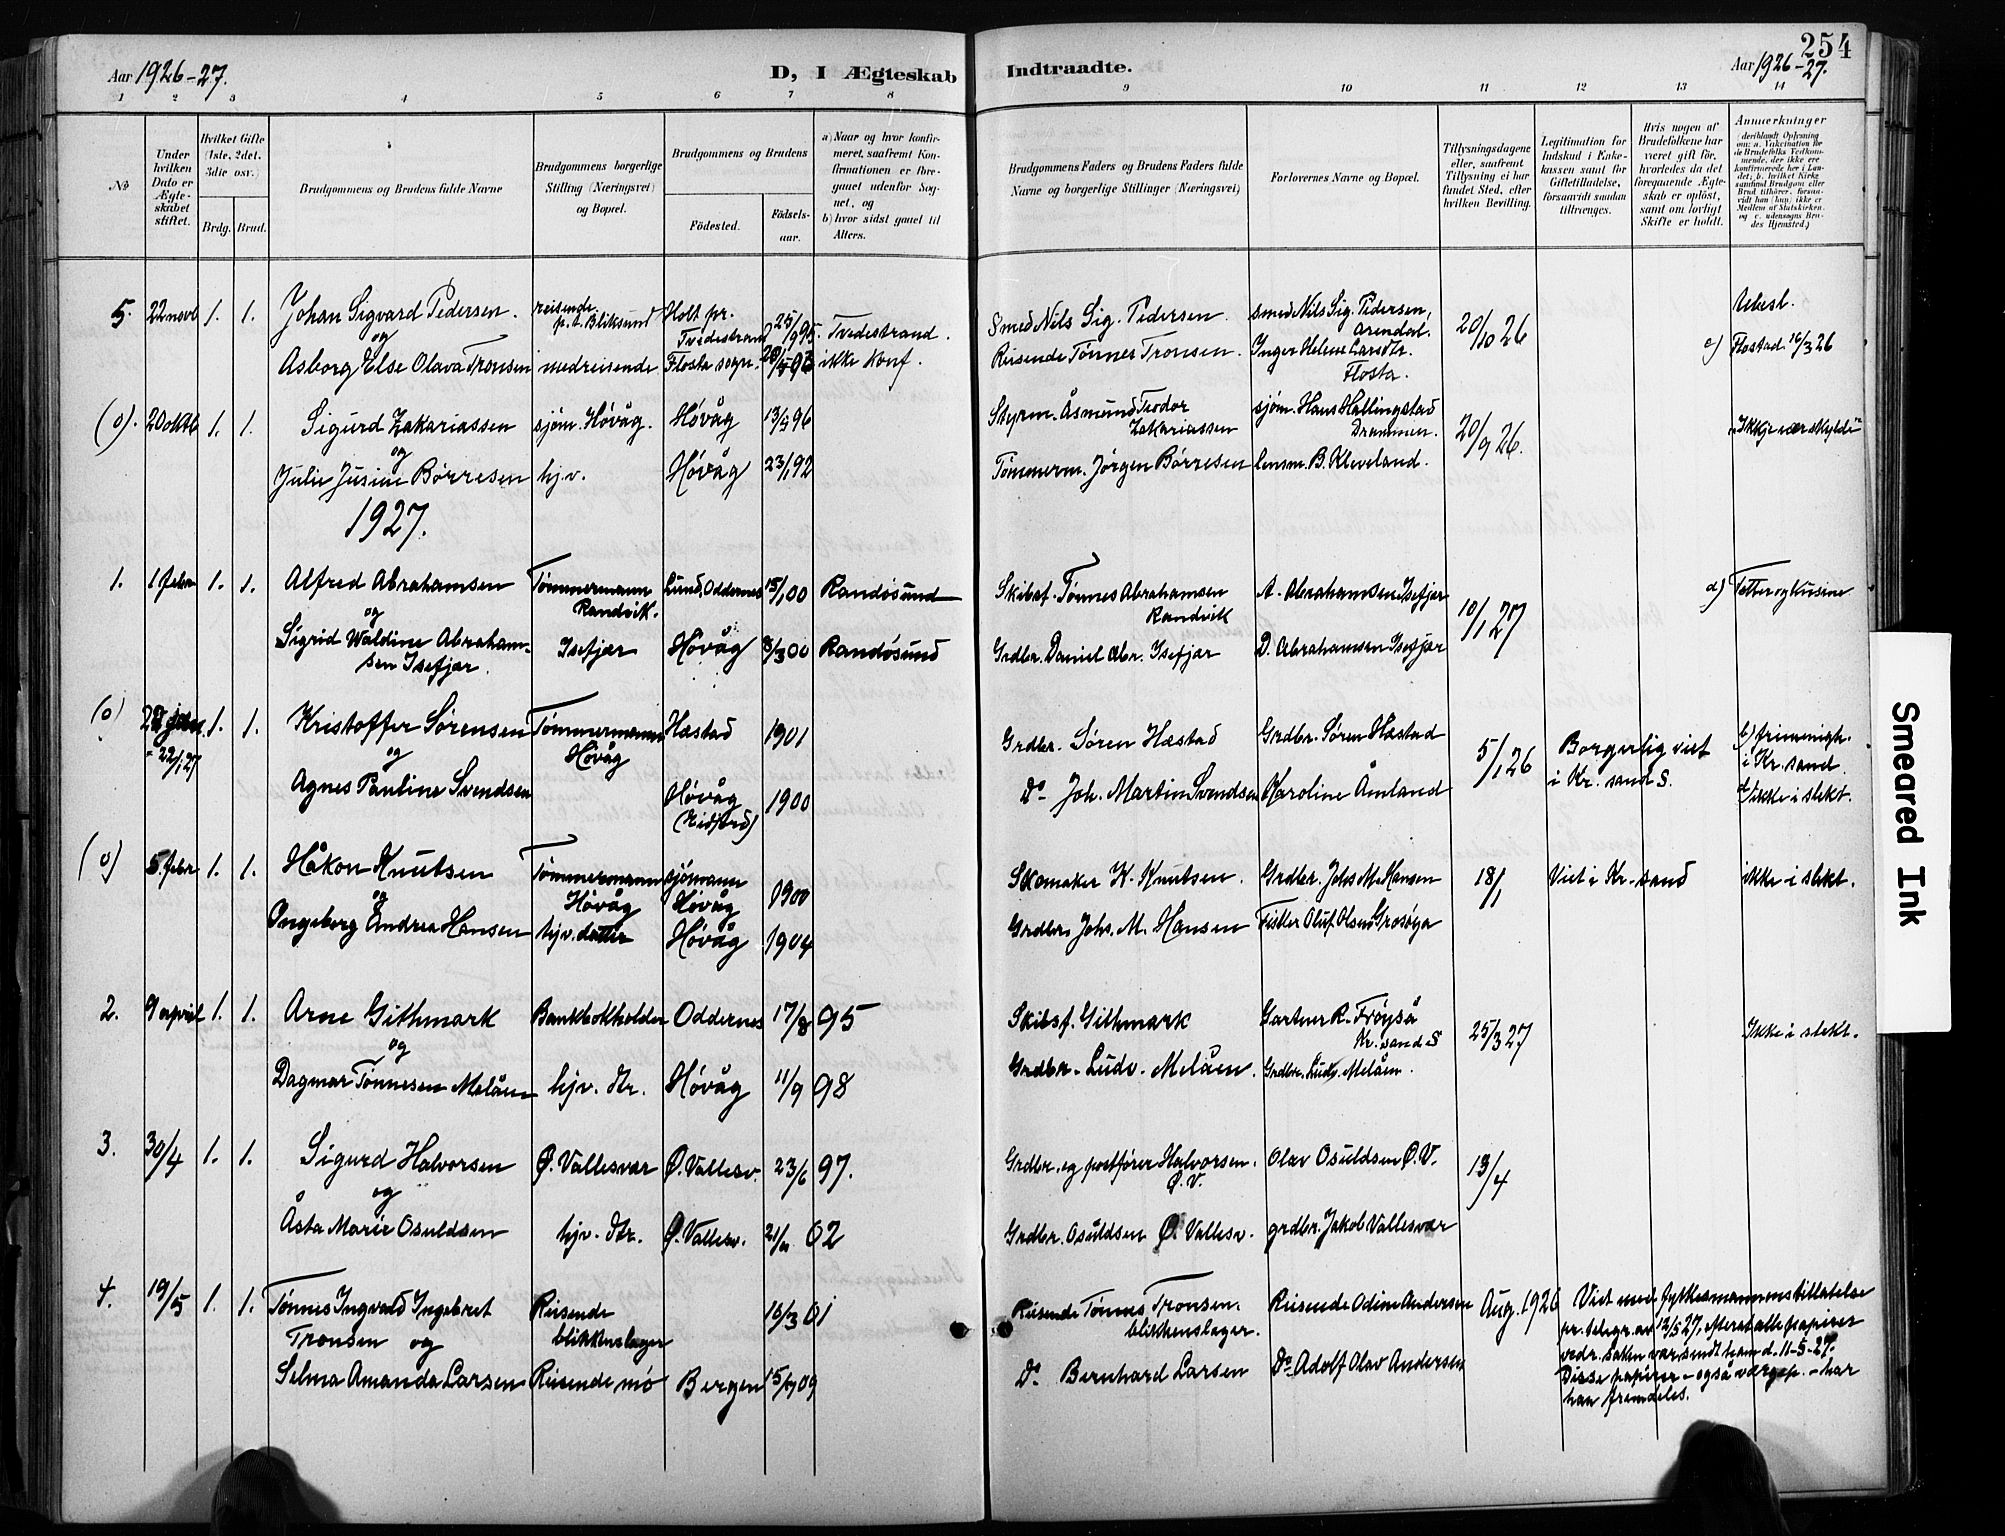 254
Aar 1926-27.
D, I Ægteskab Indtraadte.
Aar 1926-27.
1 2 3 4 5 6 7 8 9 10 11 12 13 14
No
Under hvilken Dato er Ægteskabet stiftet.
Hvilket Gifte (1ste, 2det, 3die osv.)
Brdg. Brud.
Brudgommens og Brudens fulde Navne
Brudgommens borgerlige Stilling (Næringsvei) og Bopæl.
Brudgommens og Brudens
Födested.
Födselsaar.
a) Naar og hvor konfirmeret, saafremt Konfirmationen er foregaaet udenfor Sognet, og
b) hvor sidst gaaet til Alters.
Brudgommens Faders og Brudens Faders fulde Navne og borgerlige Stillinger (Næringsvei)
Forlovernes Navne og Bopæl.
Tillysningsdagene eller, saafremt Tillysning ei har fundet Sted, efter hvilken Bevilling.
Legitimation for Indskud i Enkekassen samt for Giftetilladelse, forsaavidt saadan tiltrænges.
Hvis nogen af Brudefolkene har været gift för, hvorledes da det foregaaende Ægteskab er oplöst, samt om lovligt Skifte er holdt.
Anmerkninger
5. 22 novb 1. 1. Johan Sigvard Pedersen. reisende p.t. Bliksund Holt pr. Tvedestrand 25/9 95. Tvedestrand. Smed Nils Sig. Pedersen. smed Nils Sig. Pedersen, Arendal. 20/10 26
og
Asborg Else Olava Tronsen medreisende Flosta sogn. ikke konf. Reisende Tønnes Tronsen. Inger Helene Larsdtr. Flosta. c) Flostad 16/3 26
(0). 20 oktb 1. 1. Sigurd Zakariassen sjøm. Høvåg. Høvåg 96 Styrm. Åsmund Teodor Zakariassen sjøm. Hans Hallingstad Drammen. 20/9 26. "Ikkje nærskylde"
og
Julie Jusine Børresen hj.v. Høvåg 23/1 92 Tømmerm. Jörgen Børresen lensm. B. Kleveland.
1927.
1. 1 febr 1. 1. Alfred Abrahamsen Tømmermann Randvik. Lund, Oddernes 15/1 00 Randøsund Skibsf. Tønnes Abrahamsen Randvik A. Abrahamsen Isefjær 10/1 27 d) Fetter og Kusine
og
Sigrid Waldine Abrahamsen Isefjær. Isefjær Høvåg 8/3 00 Randøsund Grdbr. Daniel Abr. Isefjær D. Abrahamsen Isefjær
(0) = 22/1 27 1. 1. Kristoffer Sørensen Tømmermann Høvåg Hæstad 1901 Grdbr. Søren Hæstad Grdbr. Søren Hæstad 5/1 26 Borgerlig viet i Kr.sand S. b) frimenigh. i Kr.sand.
og
Agnes Pauline Svendsen Høvåg 1900 Do Joh. Martin Svendsen Karoline Åmland d) ikke i slekt.
(0) 5. febr 1. 1. Håkon Knutsen Tømmermann Høvåg sjømann Høvåg 1900 Skomaker K. Knutsen. Grdbr. Johs M. Hansen 18/1 Viet i Kr.sand ikke i slekt.
og
Ingeborg Andrea Hansen hjv. datter Høvåg 1904 Grdbr. Johs. M. Hansen Fisker Oluf Olsen Grosøya
2. 9 april 1. 1. Arne Githmark Bankbokholder Oddernes 17/8 95 Skibsf. Githmark Gartner R. Frøyså Kr.sand S 25/3 27 Ikke i slekt.
og
Dagmar Tønnesen Melåen hjv. dtr. Høvåg 11/9 98 Grdbr. Ludv. Melåen. Grdbr. Ludv. Melåen.
3. 30/4 1. 1. Sigurd Halvorsen Ø. Vallesvær Ø. Vallesv. 23/6 97. Grdbr. og postfører Halvorsen. Ø.V. Olav Osuldsen Ø.V. 13/4
og
Åsta Marie Osuldsen hjv. dtr. Ø. Vallesv. 02 Grdbr. Osuldsen Ø. Vallesv. grdbr. Jakob Vallesvær
4. 19/5 1. 1. Tønnes Ingvald Ingebret Tronsen og Reisende blikkenslager 16/3 01 Reisende Tønnes Tronsen. blikkenslager. Reisende Odine Andersen Aug. 1926 Viet med fylkesmannens tillatelse
pr. telegr. av 12/5 27, efterat alle papirer
vedr. saken var sendt ham d. 11-5-27.
Selma Amanda Larsen Reisende mø Bergen 09 Do Bernhard Larsen Do Adolf Olav Andersen Disse papirer - også vergep. - har
han fremdeles.
Smeared Ink